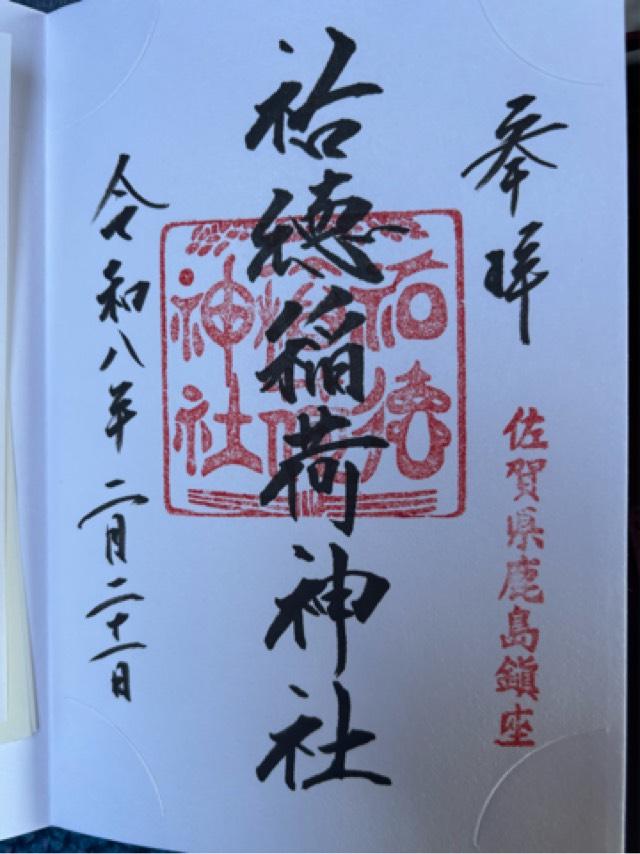 奉拝
佐賀県鹿島鎮座
祐徳稲荷神社
祐徳
稲荷
神社
令和八年二月二十一日